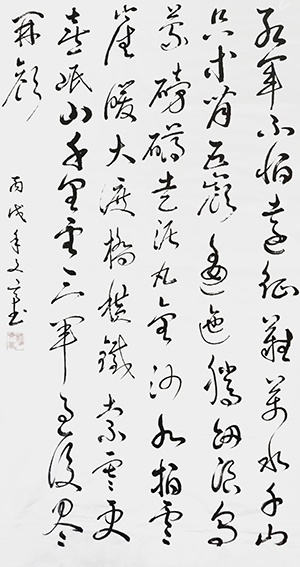 红军不怕遠征難萬水千山
只等闲五嶺逶迤腾细浪乌
蒙磅礴走泥丸金沙水拍雲
崖暖大渡橋横鐵索寒更
喜岷山千里雪三军過後尽
開颜
丙戌年文